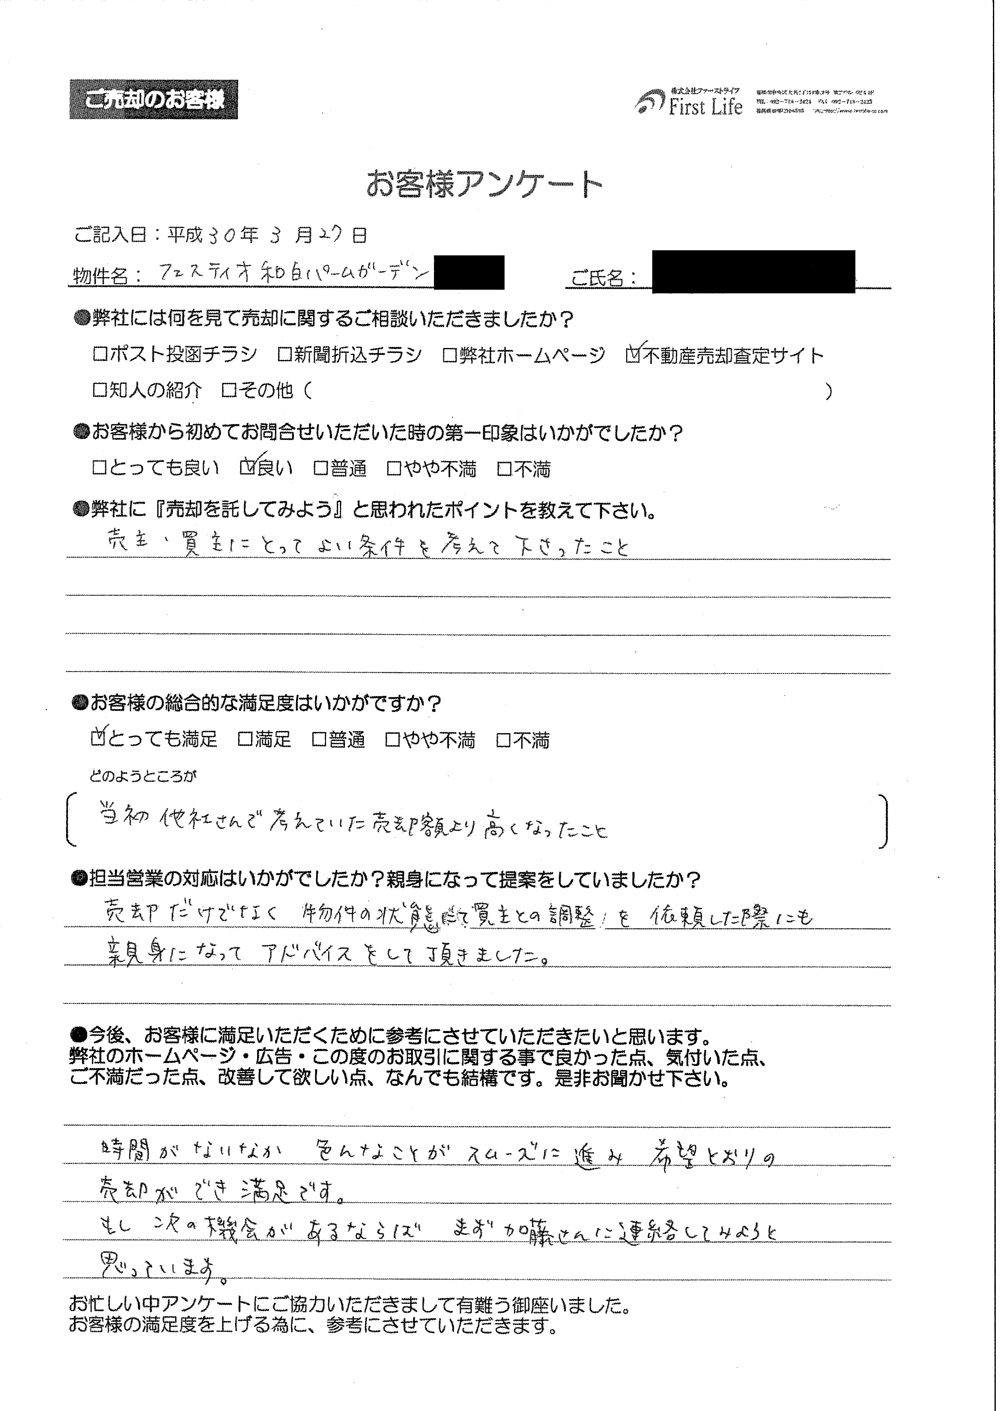 ご売却のお客様
株式会社ファーストライフ
First Life
お客様アンケート
ご記入日：平成30年3月27日
物件名： フェスティオ和白パームガーデン ご氏名：
●弊社には何を見て売却に関するご相談いただきましたか？
□ポスト投函チラシ □新聞折込チラシ □弊社ホームページ ☑不動産売却査定サイト
□知人の紹介 □その他（ ）
●お客様から初めてお問合せいただいた時の第一印象はいかがでしたか？
□とっても良い ☑良い □普通 □やや不満 □不満
●弊社に『売却を託してみよう』と思われたポイントを教えて下さい。
売主、買主にとってよい条件を考えて下さったこと
●お客様の総合的な満足度はいかがですか？
☑とっても満足 □満足 □普通 □やや不満 □不満
どのようところが
当初他社さんで考えていた売却額より高くなったこと
●担当営業の対応はいかがでしたか？親身になって提案をしていましたか？
売却だけでなく 物件の状態 買主との調整 を 依頼した際にも
親身になって アドバイスをして頂きました。
●今後、お客様に満足いただくために参考にさせていただきたいと思います。
弊社のホームページ・広告・この度のお取引に関する事で良かった点、気付いた点、
ご不満だった点、改善して欲しい点、なんでも結構です。是非お聞かせ下さい。
時間がないなか 色んなことがスムーズに進み 希望どおりの
売却ができ満足です。
もし 次の機会があるならば まず加藤さんに連絡してみようと
思っています。
お忙しい中アンケートにご協力いただきまして有難う御座いました。
お客様の満足度を上げる為に、参考にさせていただきます。